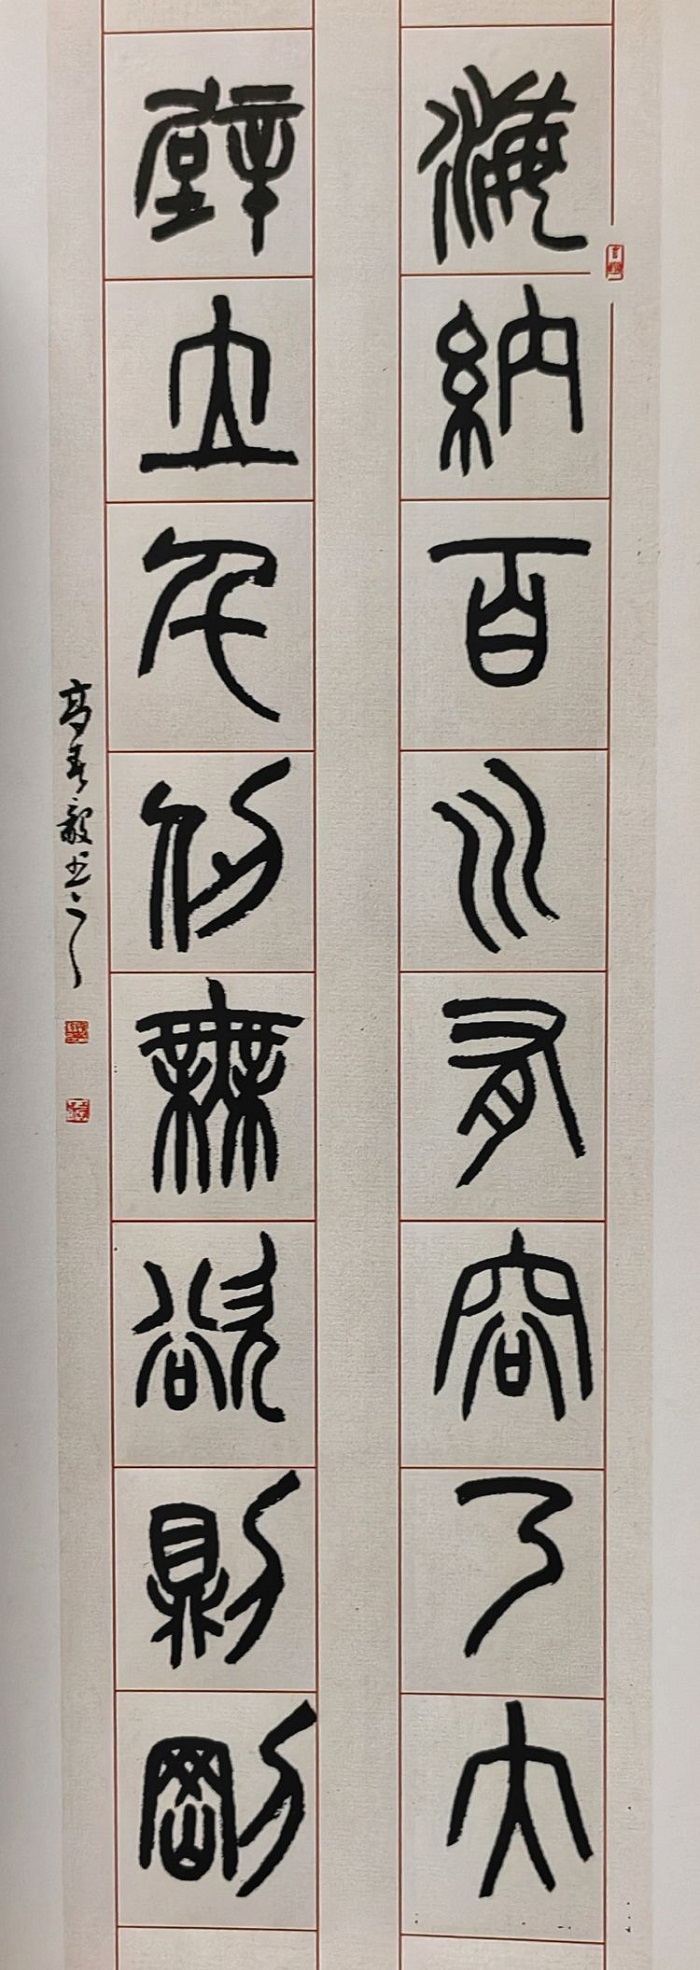 海納百川有容乃大
壁立千仞無欲則剛
高春毅书